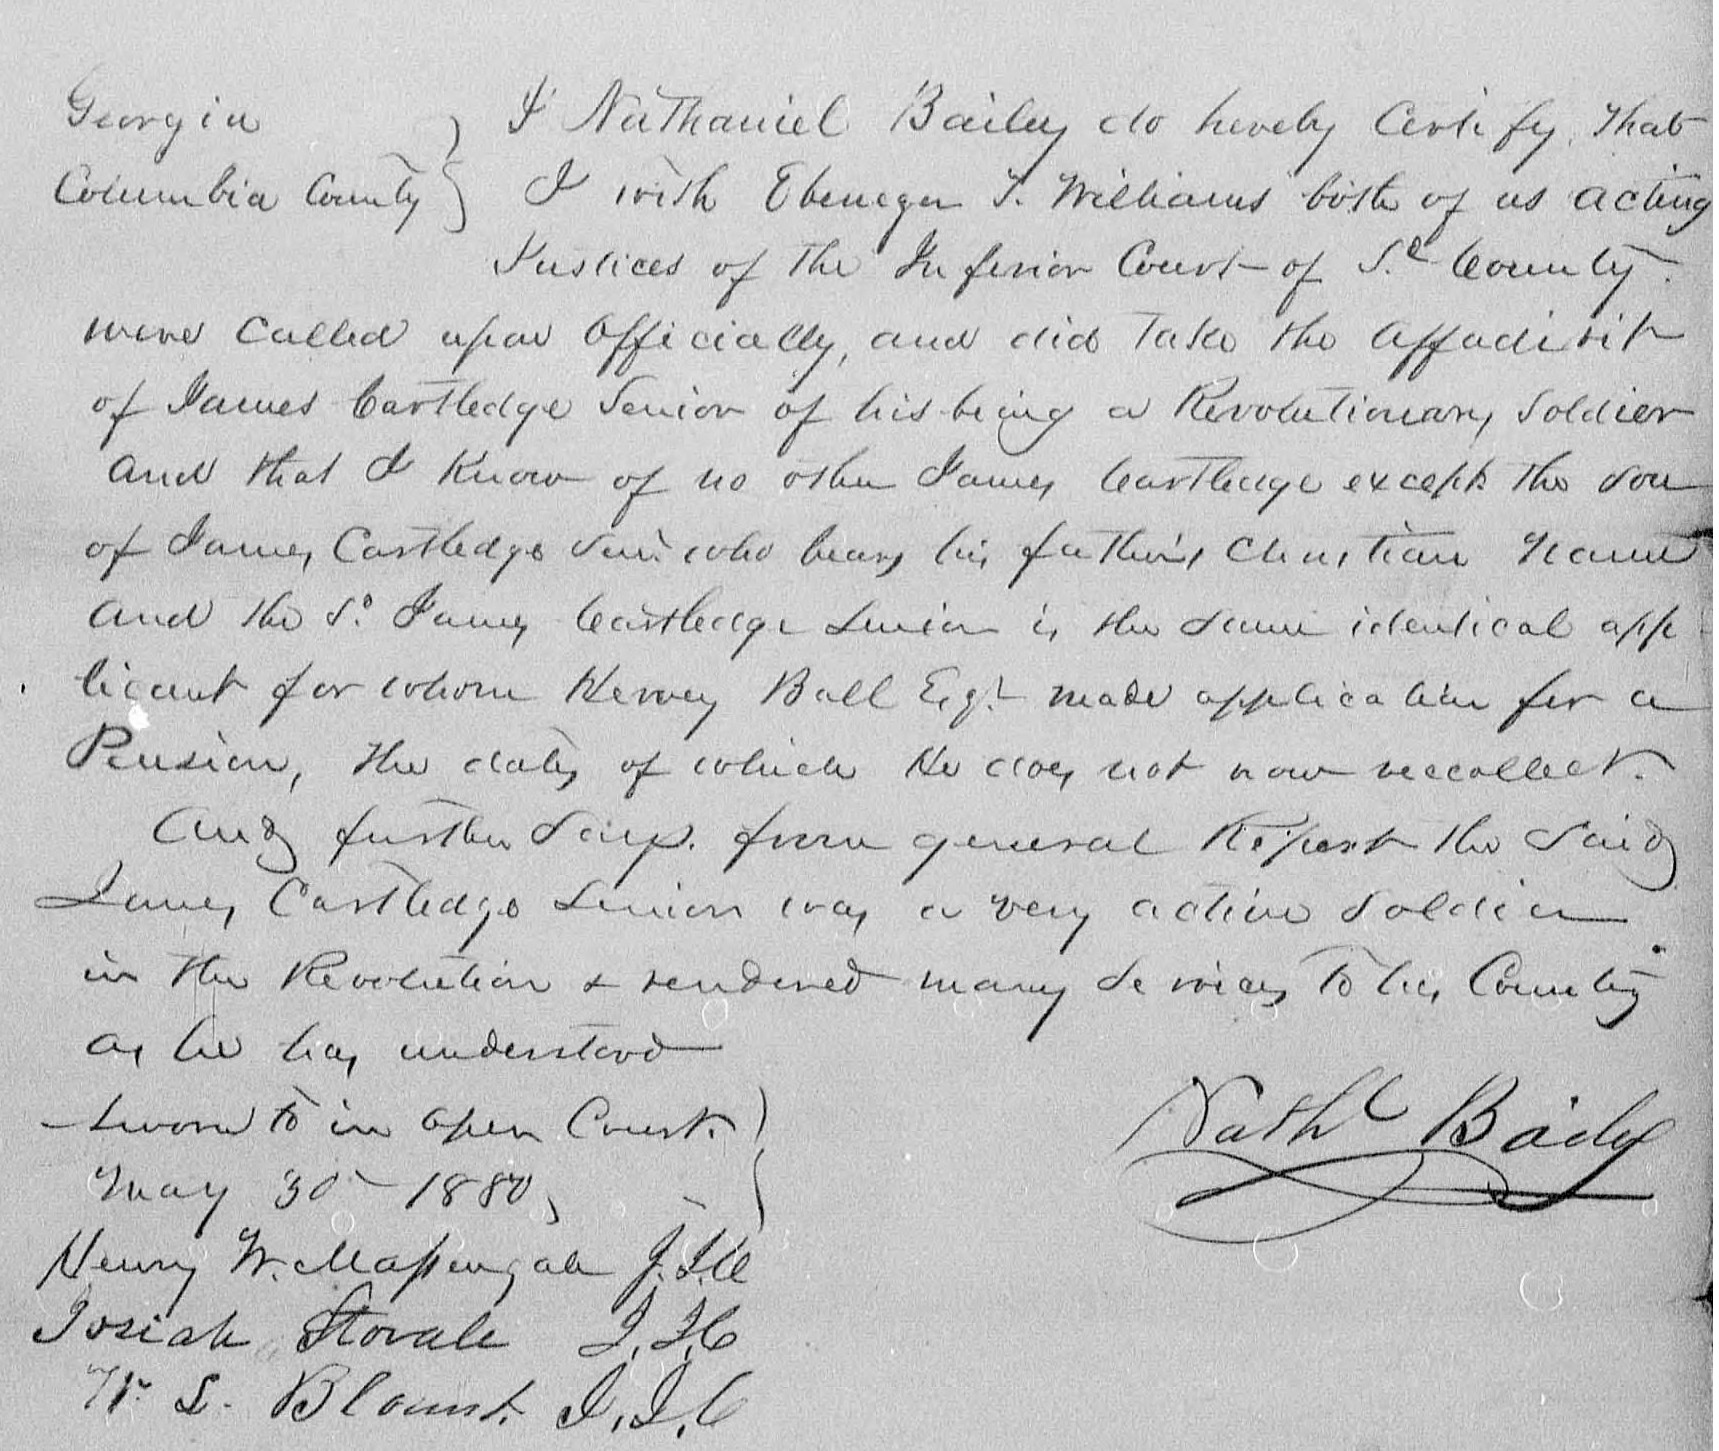 Georgia } I Nathaniel Bailey do hereby Certify, that
Columbia County } I with Ebenezer T. Williams both of us acting
Justices of the Inferior Court of Sd County.
were called upon Officially, and did take the affadivit
of James Cartledge Senior of his being a Revolutionary Soldier
and that I know of no other James Cartledge except the son
of James Cartledge Senr who bears his father's Christian Name
and the Sd. James Cartledge Senior is the same identical app
licant for whom Hervey Ball Esqr made application for a
Pension, the date of which He does not now reccollect.
And further Says. from general Report the Said
James Cartledge Senior was a very active Soldier
in the Revolution & rendered many Services to his County
as he has understood
Sworn to in open Court. }
May 30 1880, }
Nathl Baily
Henry W. Massengale J.I.C
Josiah Stovall J.I.C
W. L. Blount. J.I.C